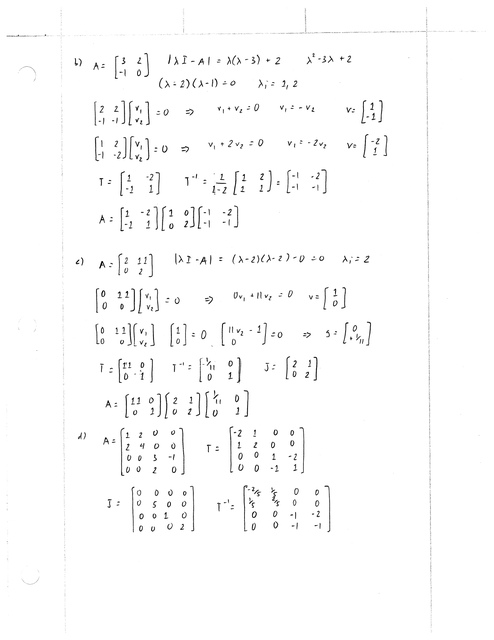 b) A = [3 2; -1 0] |λI - A| = λ(λ-3) + 2 λ² - 3λ + 2
(λ-2)(λ-1) = 0 λᵢ = 1, 2
[2 2; -1 -1][v₁; v₂] = 0 ⇒ v₁ + v₂ = 0 v₁ = -v₂ v = [1; -1]
[1 2; -1 -2][v₁; v₂] = 0 ⇒ v₁ + 2v₂ = 0 v₁ = -2v₂ v = [-2; 1]
T = [1 -2; -1 1] T⁻¹ = 1/(1-2) [1 2; 1 1] = [-1 -2; -1 -1]
A = [1 -2; -1 1][1 0; 0 2][-1 -2; -1 -1]
c) A = [2 11; 0 2] |λI - A| = (λ-2)(λ-2) - 0 = 0 λᵢ = 2
[0 11; 0 0][v₁; v₂] = 0 ⇒ 0v₁ + 11v₂ = 0 v = [1; 0]
[0 11; 0 0][v₁; v₂] [1; 0] = 0 [11v₂ - 1; 0] = 0 ⇒ S = [0; 1/11]
T = [11 0; 0 1] T⁻¹ = [1/11 0; 0 1] J = [2 1; 0 2]
A = [11 0; 0 1][2 1; 0 2][1/11 0; 0 1]
d) A = [1 2 0 0; 2 4 0 0; 0 0 3 -1; 0 0 2 0] T = [-2 1 0 0; 1 2 0 0; 0 0 1 -2; 0 0 -1 1]
J = [0 0 0 0; 0 5 0 0; 0 0 1 0; 0 0 0 2] T⁻¹ = [-2/5 1/5 0 0; 1/5 2/5 0 0; 0 0 -1 -2; 0 0 -1 -1]